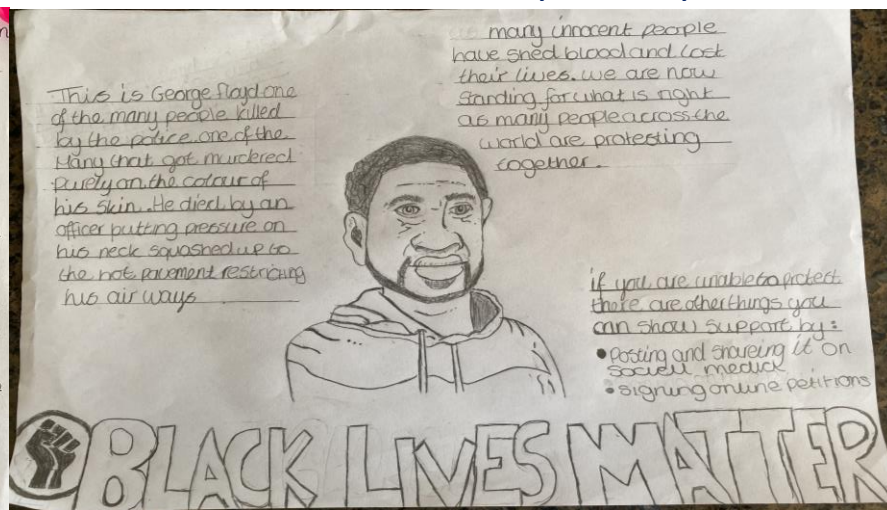 This is George floyd one
of the many people killed
by the police. one of the
Many that got murdered
purely on the colour of
his skin. He died by an
officer putting pressure on
his neck squashed up to
the hot pavement restricting
his air ways
many innocent people
have shed blood and lost
their lives. we are now
standing for what is right
as many people across the
world are protesting
together.
if you are unable to protest
there are other things you
can show support by:
• Posting and shareing it on
sociell medica
• signing online petitions
BLACK LIVES MATTER